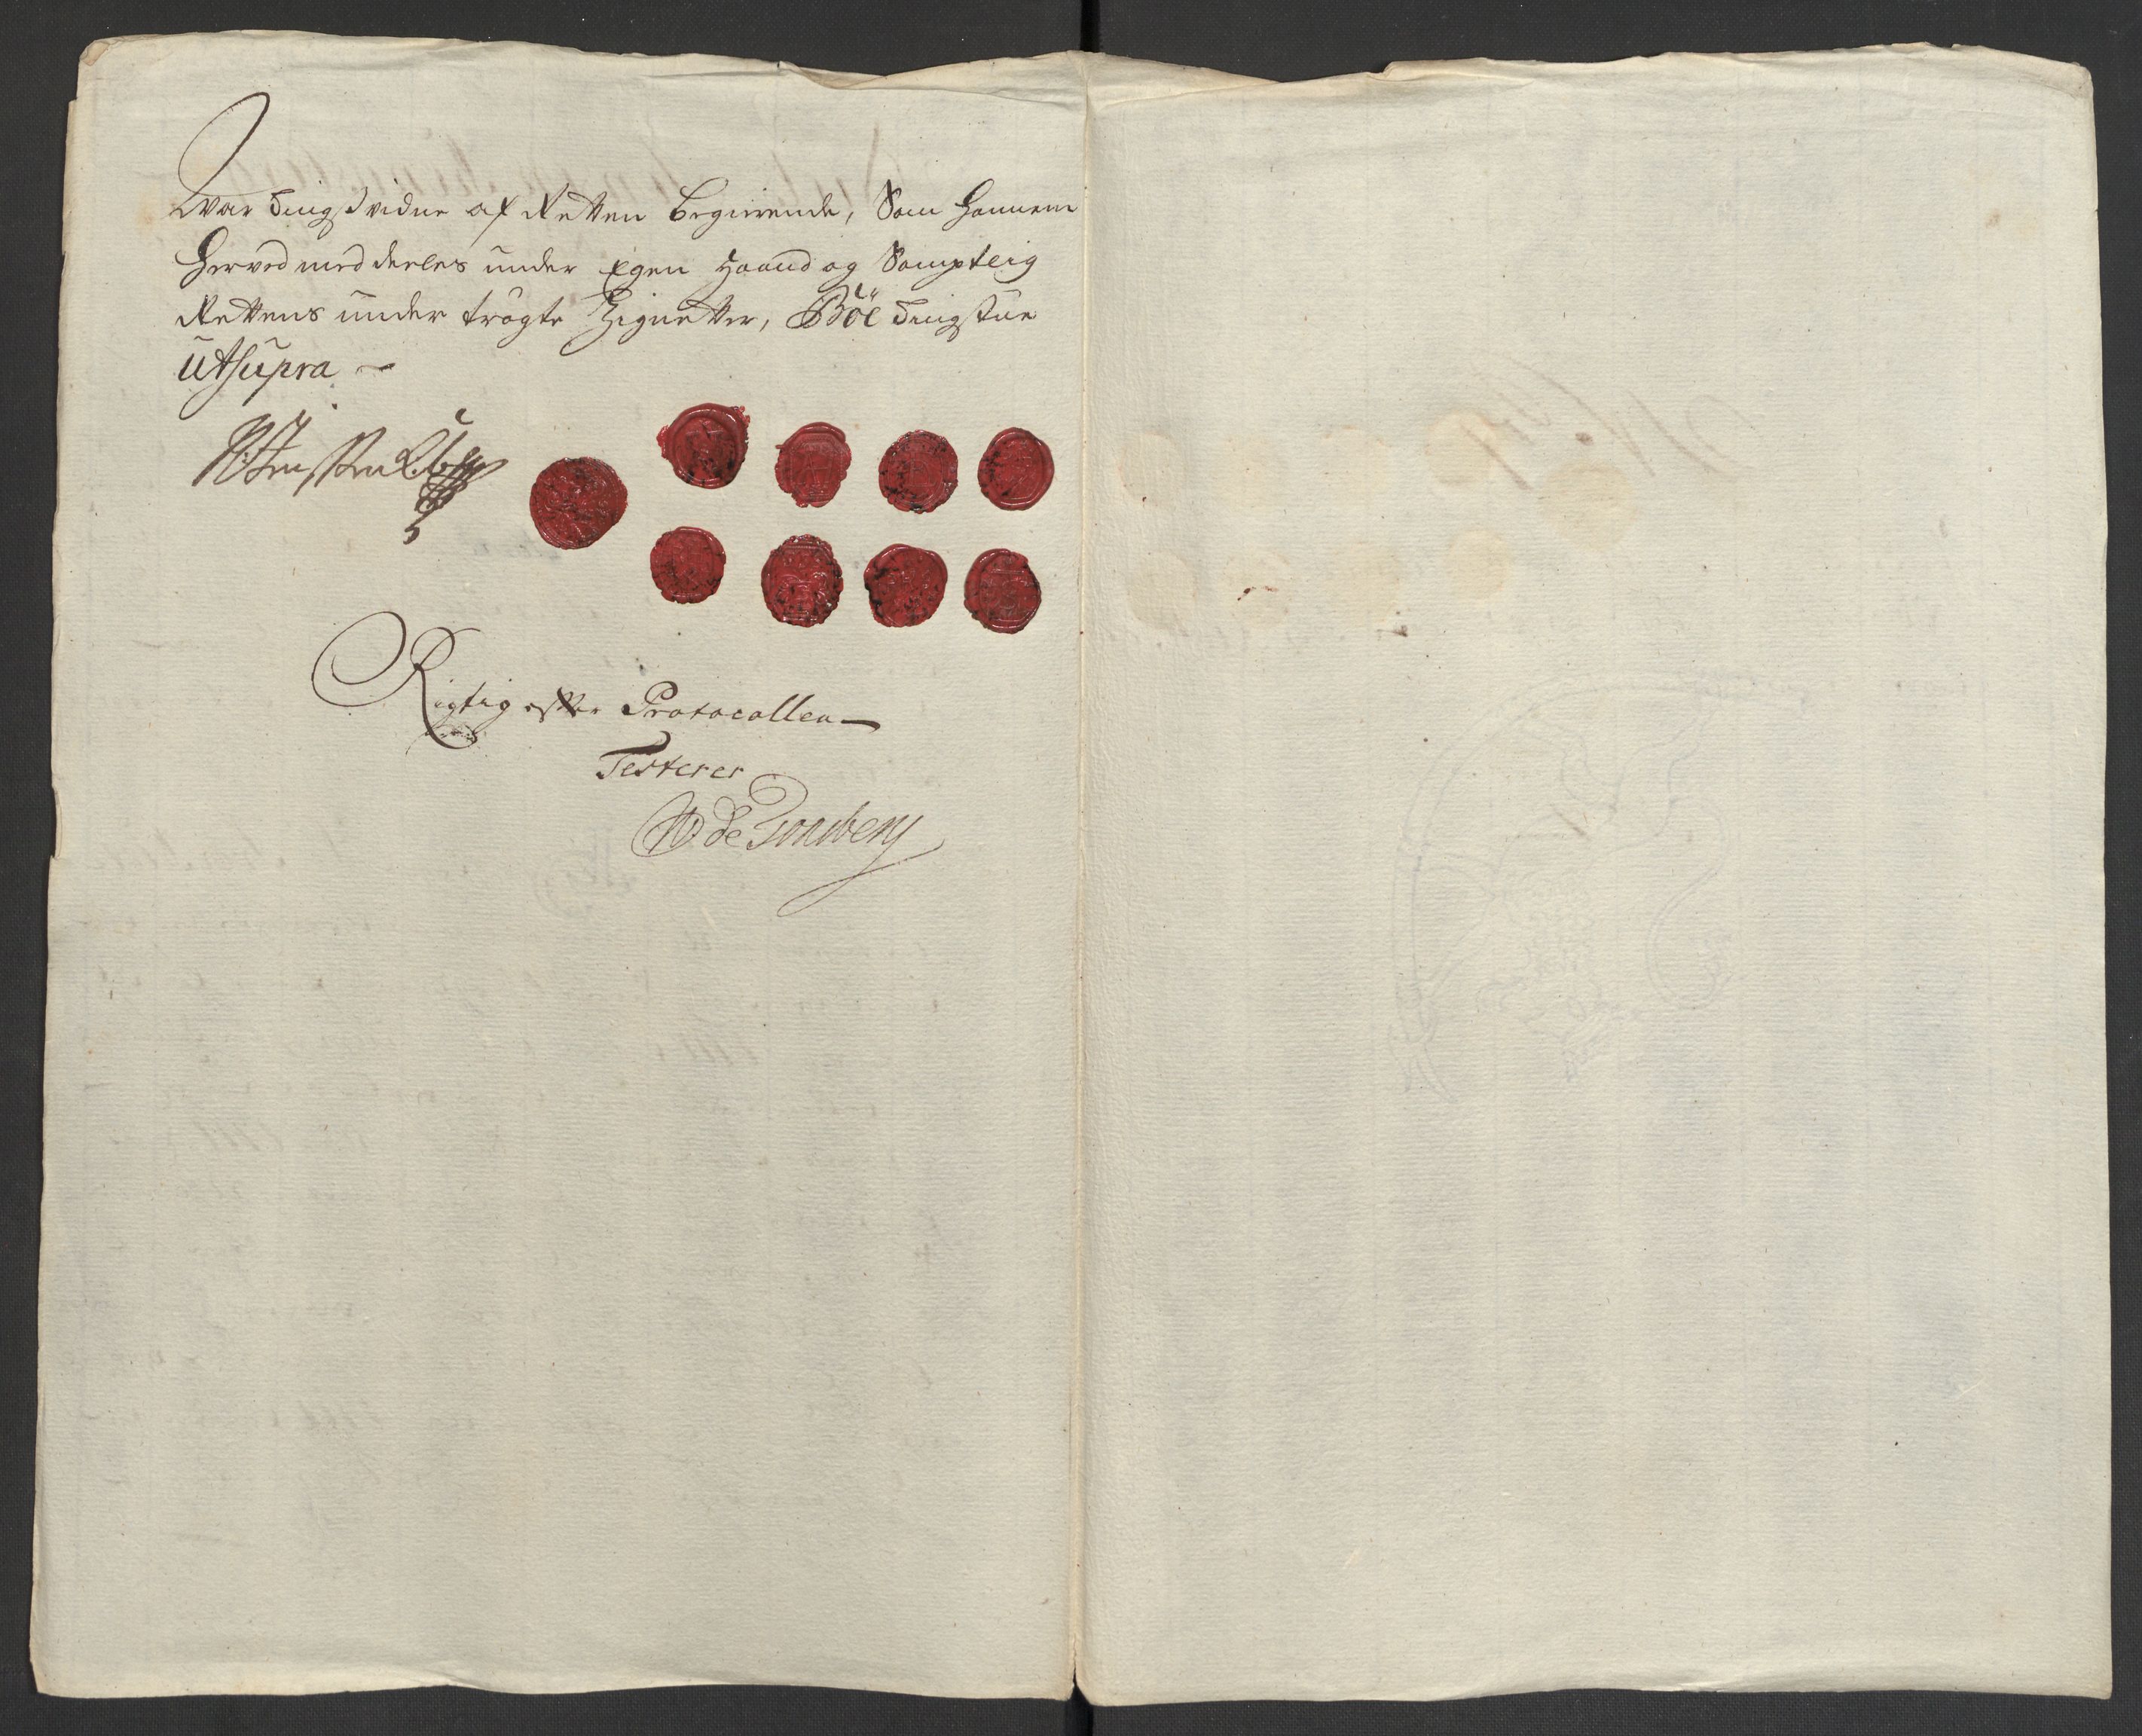 War Tingsvidne af Retten Begierende, Som hannem
Herved med deeles under Egen Haand og Samptlig
Rettens under trögte Zignetter, Böe Tingstue
ut supra
Rigtig efter Protocollen
Testerer
de Tonsberg